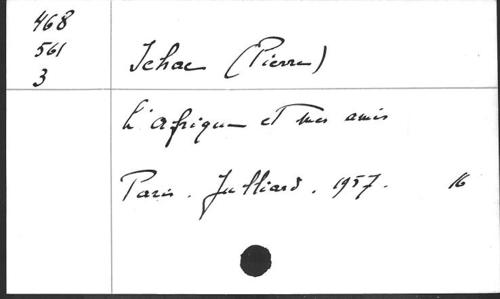 468
561
3
Ichac (Pierre)
L'Afrique et mes amis
Paris. Julliard. 1957. 16